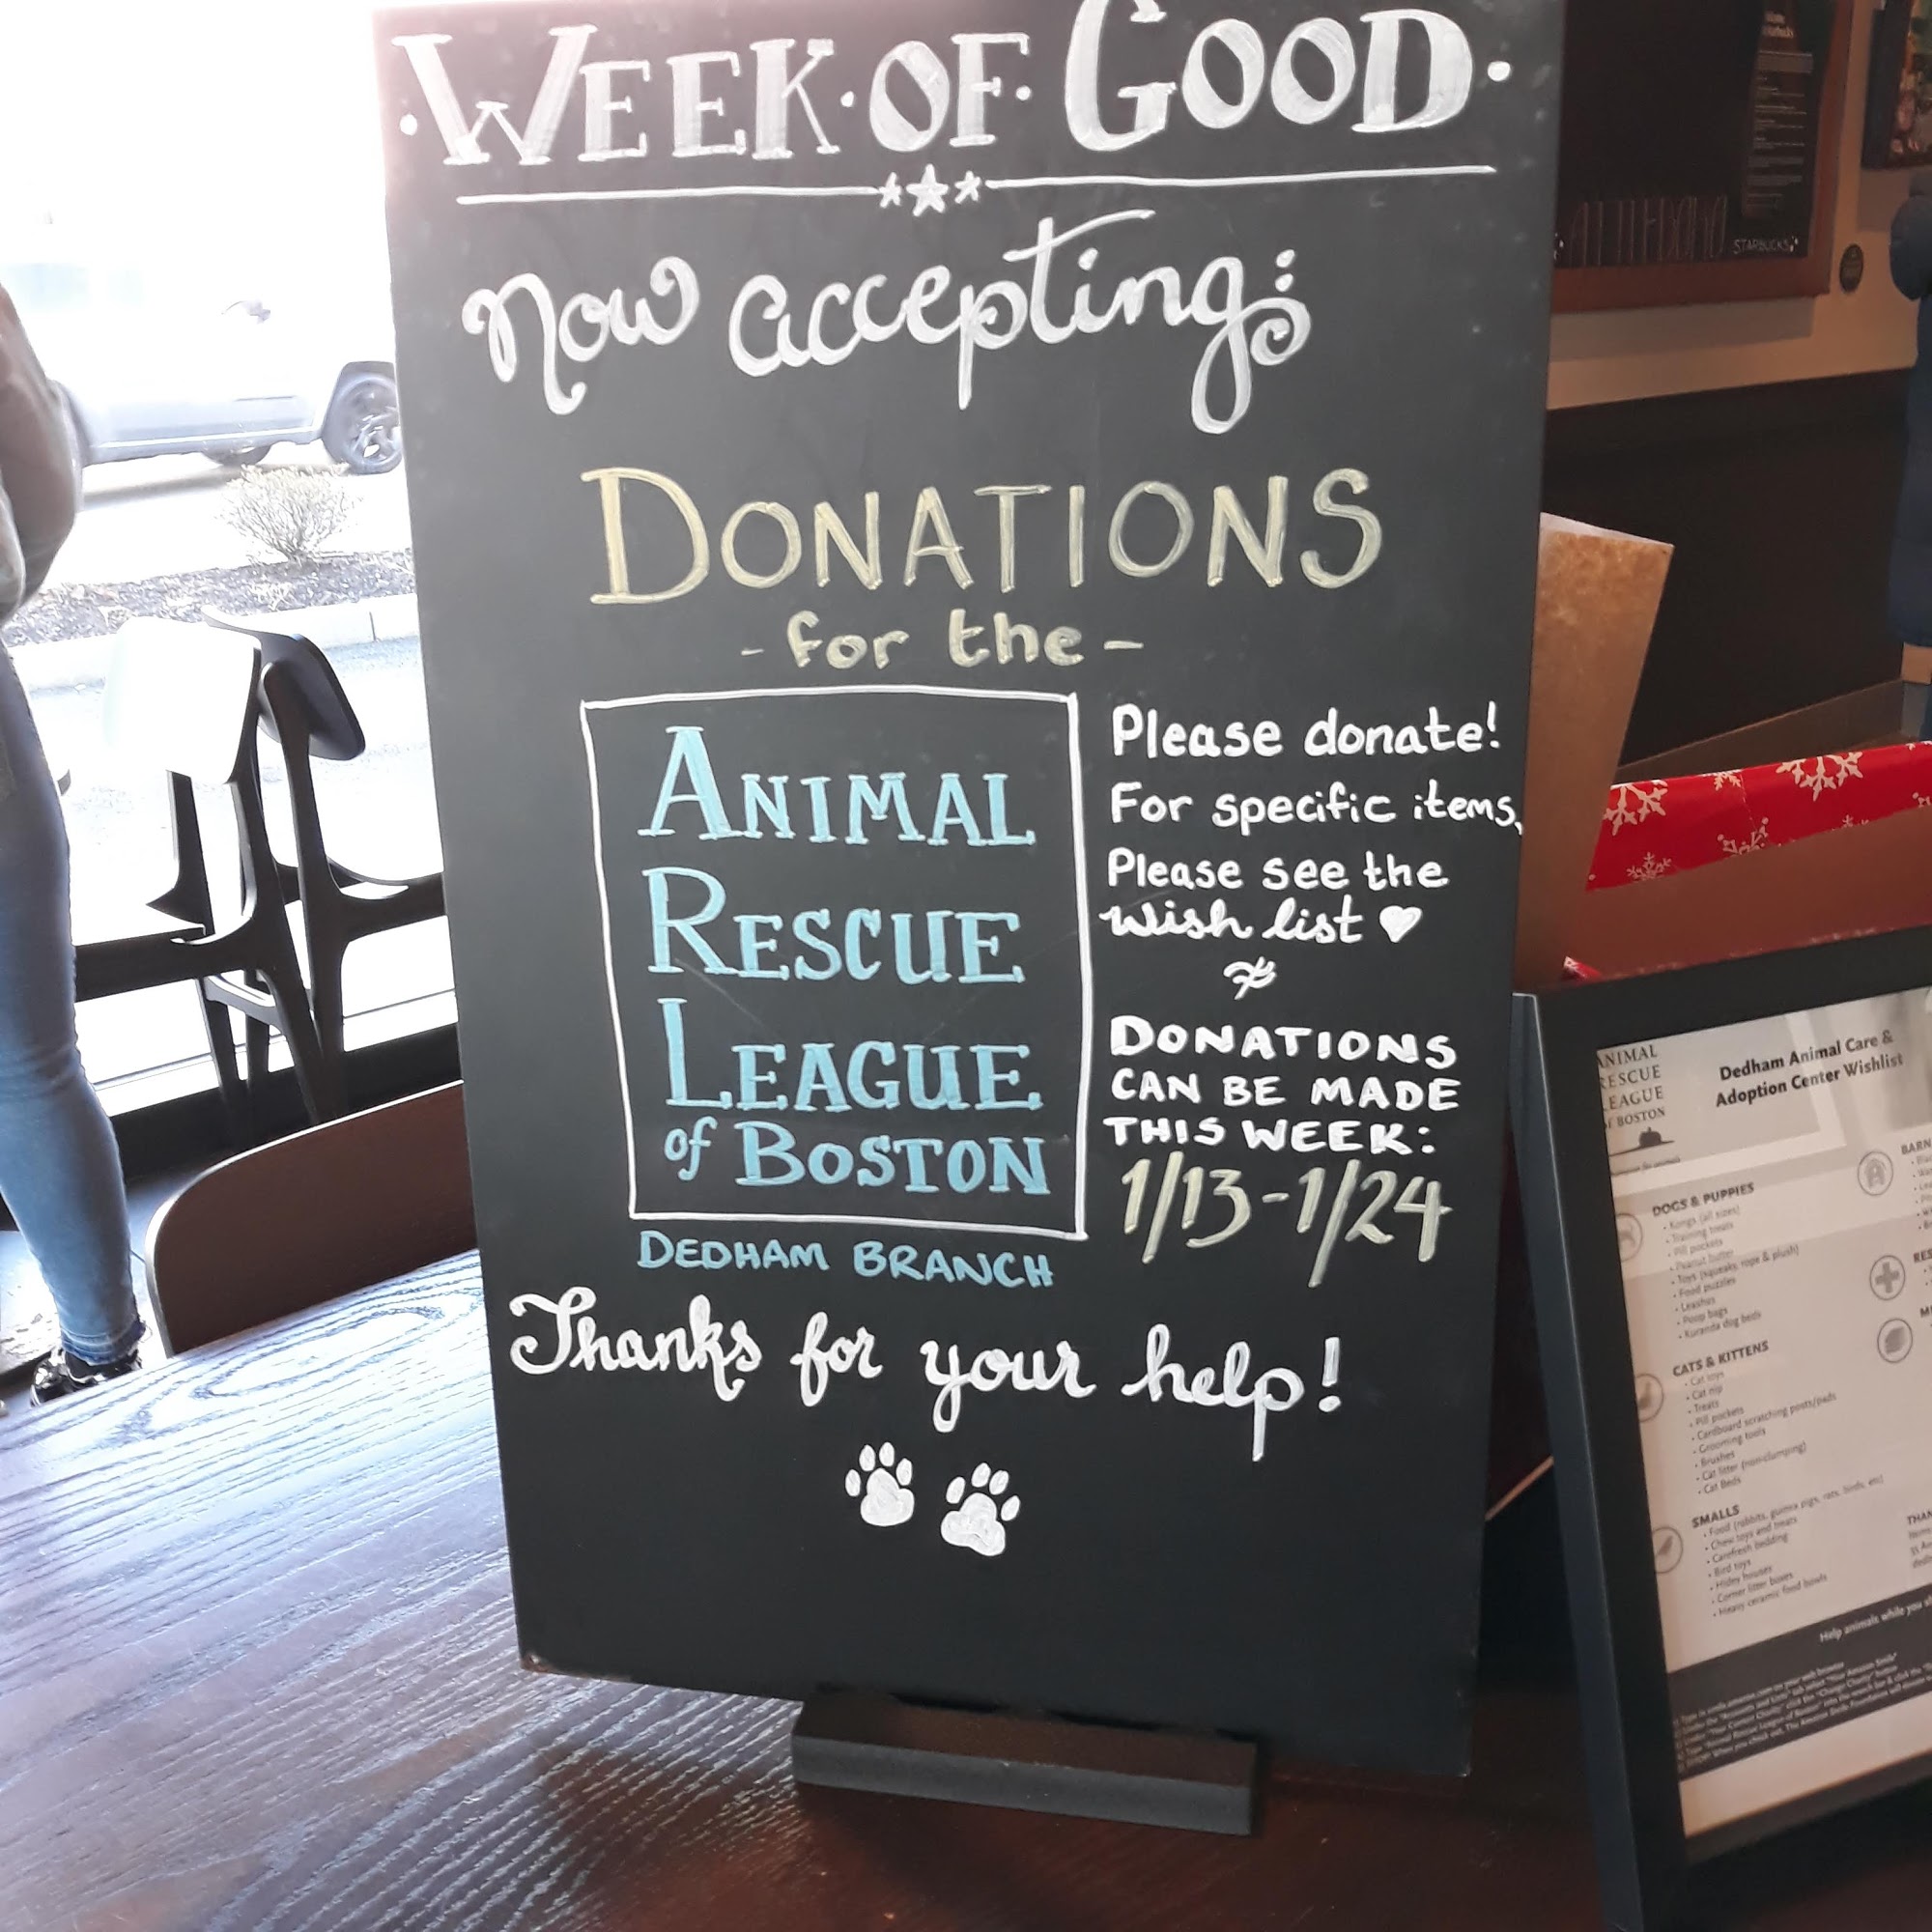 WEEK·OF·GOOD·
Now accepting:
DONATIONS
- for the -
ANIMAL
RESCUE
LEAGUE
of BOSTON
DEDHAM BRANCH
Please donate!
For specific items,
Please see the
wish list
DONATIONS
CAN BE MADE
THIS WEEK:
1/13-1/24
Thanks for your help!
STARBUCKS
ANIMAL
RESCUE
LEAGUE
OF BOSTON
Dedham Animal Care &
Adoption Center Wishlist
DOGS & PUPPIES
• Kongs (all sizes)
• Training treats
• Pill pockets
• Peanut butter
• Toys (squeaks, rope & plush)
• Food puzzles
• Leashes
• Poop bags
• Kuranda dog beds
CATS & KITTENS
• Cat toys
• Cat nip
• Treats
• Pill pockets
• Cardboard scratching posts/pads
• Grooming tools
• Brushes
• Cat litter (non-clumping)
• Cat Beds
SMALLS
• Food (rabbits, guinea pigs, rats, birds, etc)
• Chew toys and treats
• Carefresh bedding
• Bird toys
• Hidey houses
• Corner litter boxes
• Heavy ceramic food bowls
BARN
Help animals while you